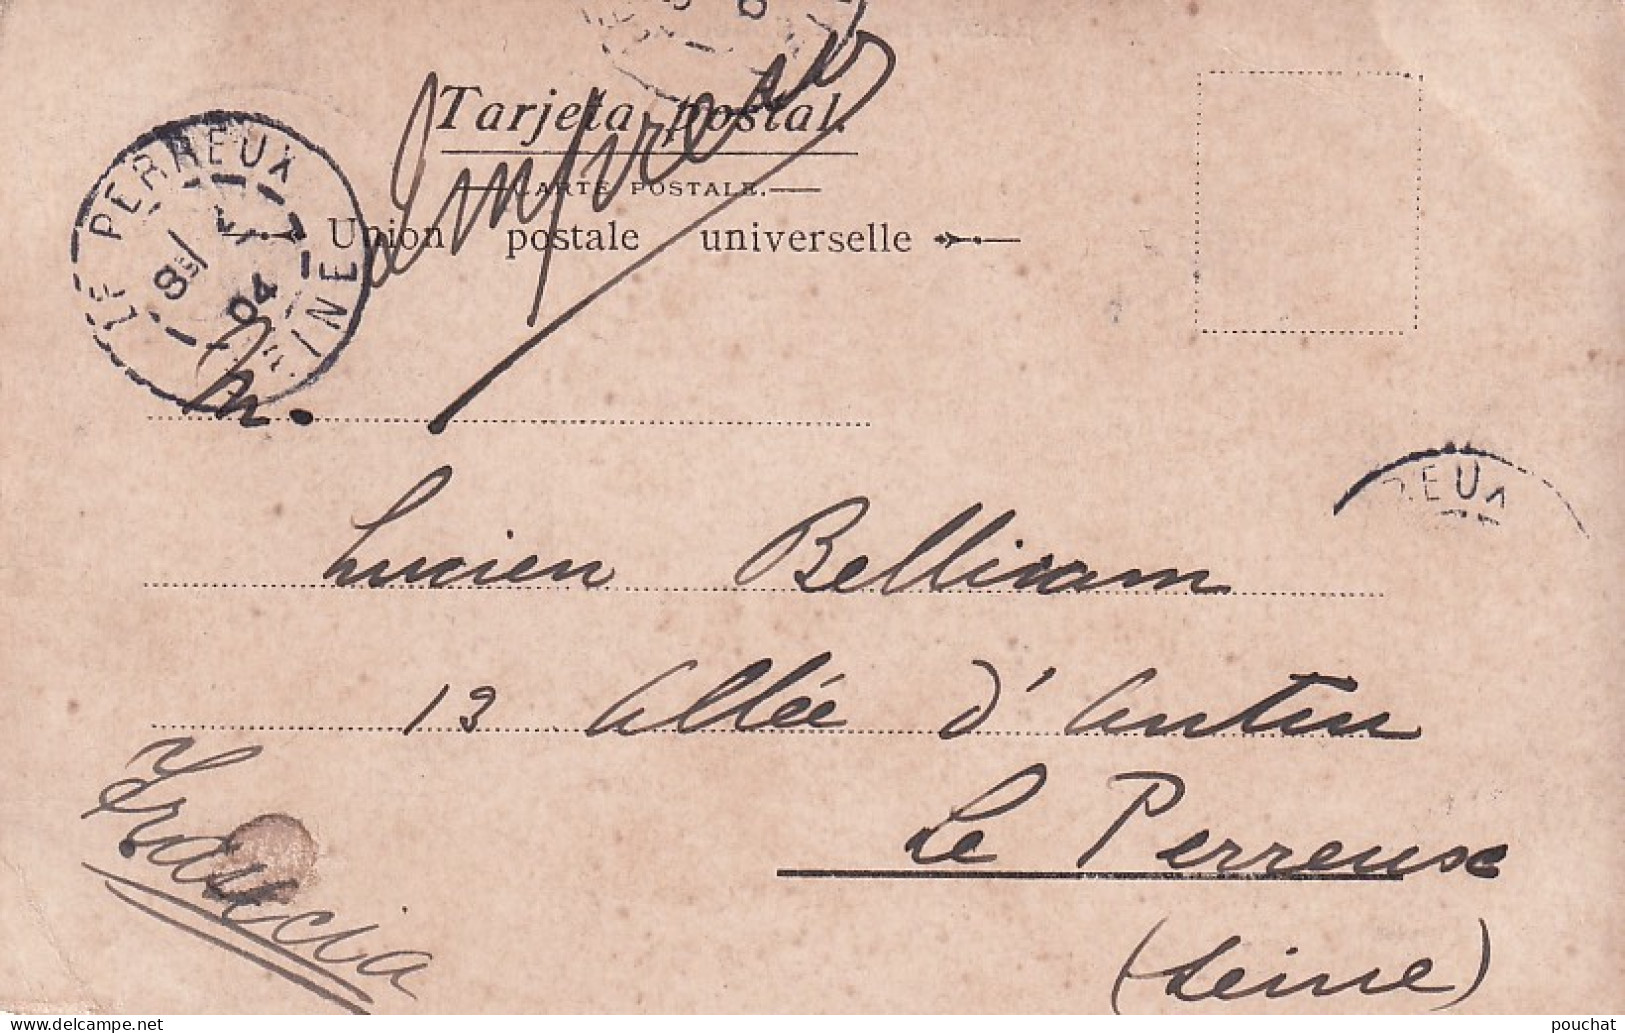 Tarjeta postal.
CARTE POSTALE.
Union postale universelle
Impresos
LE PERREUX
SEINE
04
M.
REUX
Lucien Bellivam
13 Allée d'Antin
Le Perreux
(Seine)
Francia
pouchat